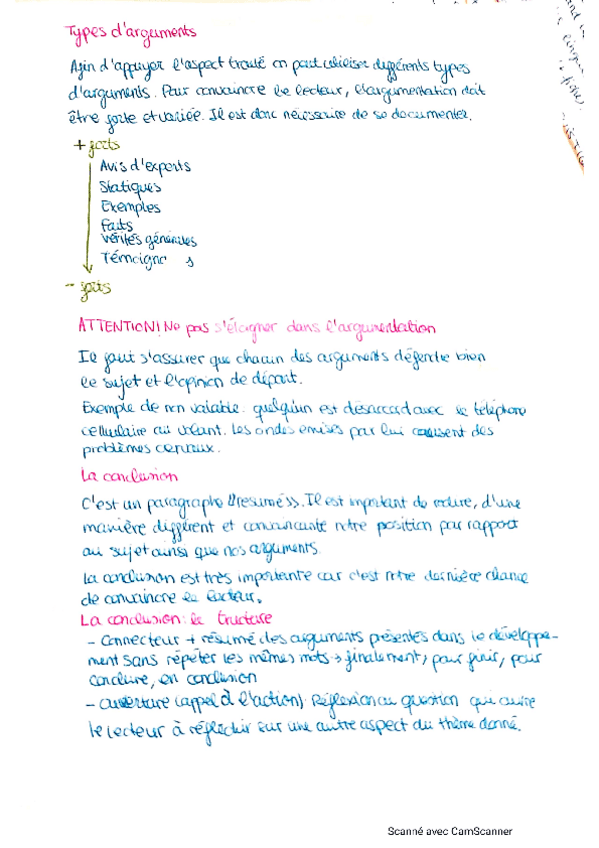 Types d'arguments
Afin d'appuyer l'aspect traité on peut utiliser différents types
d'arguments. Pour convaincre le lecteur, l'argumentation doit
être forte et variée. Il est donc nécessaire de se documenter.
+ forts
Avis d'experts
Statiques
Exemples
Faits
Vérités générales
Témoigna s
- forts
ATTENTION! Ne pas s'éloigner dans l'argumentation
Il faut s'assurer que chacun des arguments défende bien
le sujet et l'opinion de départ.
Exemple de non valable: quelqu'un est désaccord avec le téléphone
cellulaire au volant. Les ondes émises par lui causent des
problèmes cervaux.
La conclusion
C'est un paragraphe "résumé". Il est important de redire, d'une
manière différent et convaincante notre position par rapport
au sujet ainsi que nos arguments.
La conclusion est très importante car c'est notre dernière chance
de convaincre le lecteur.
La conclusion: la tructure
- Connecteur + résumé des arguments présentés dans le développe-
ment sans répéter les mêmes mots → finalement, pour finir, pour
conclure, en conclusion
- Ouverture (appel à l'action): Réflexion ou question qui
le lecteur à réfléchir sur une autre aspect du thème donné.
Scanné avec CamScanner